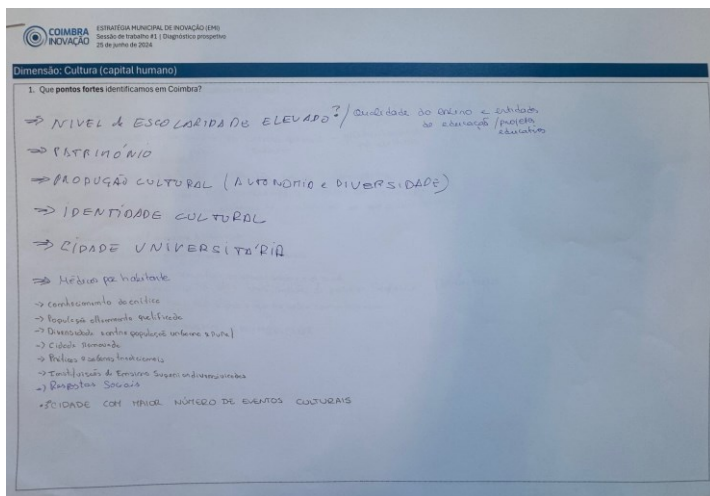 COIMBRA
INOVAÇÃO
ESTRATÉGIA MUNICIPAL DE INOVAÇÃO (EMI)
Sessão de trabalho #1 | Diagnóstico prospetivo
25 de junho de 2024
Dimensão: Cultura (capital humano)
1. Que pontos fortes identificamos em Coimbra?
⇒ NIVEL de ESCOLARIDADE ELEVADO? / Qualidade do ensino e entidades
de educação / projeto
educativo
⇒ PATRIMÓNIO
⇒ PRODUÇÃO CULTURAL (AUTONOMIA e DIVERSIDADE)
⇒ IDENTIDADE CULTURAL
⇒ CIDADE UNIVERSITÁRIA
⇒ Médicos por habitante
-> Conhecimento científico
-> População altamente qualificada
-> Diversidade entre população urbana e rural
-> Cidade
-> Práticas e saberes tradicionais
-> Instituições de Ensino Superior diversificadas
-> Respostas Sociais
-> CIDADE COM MAIOR NÚMERO DE EVENTOS CULTURAIS